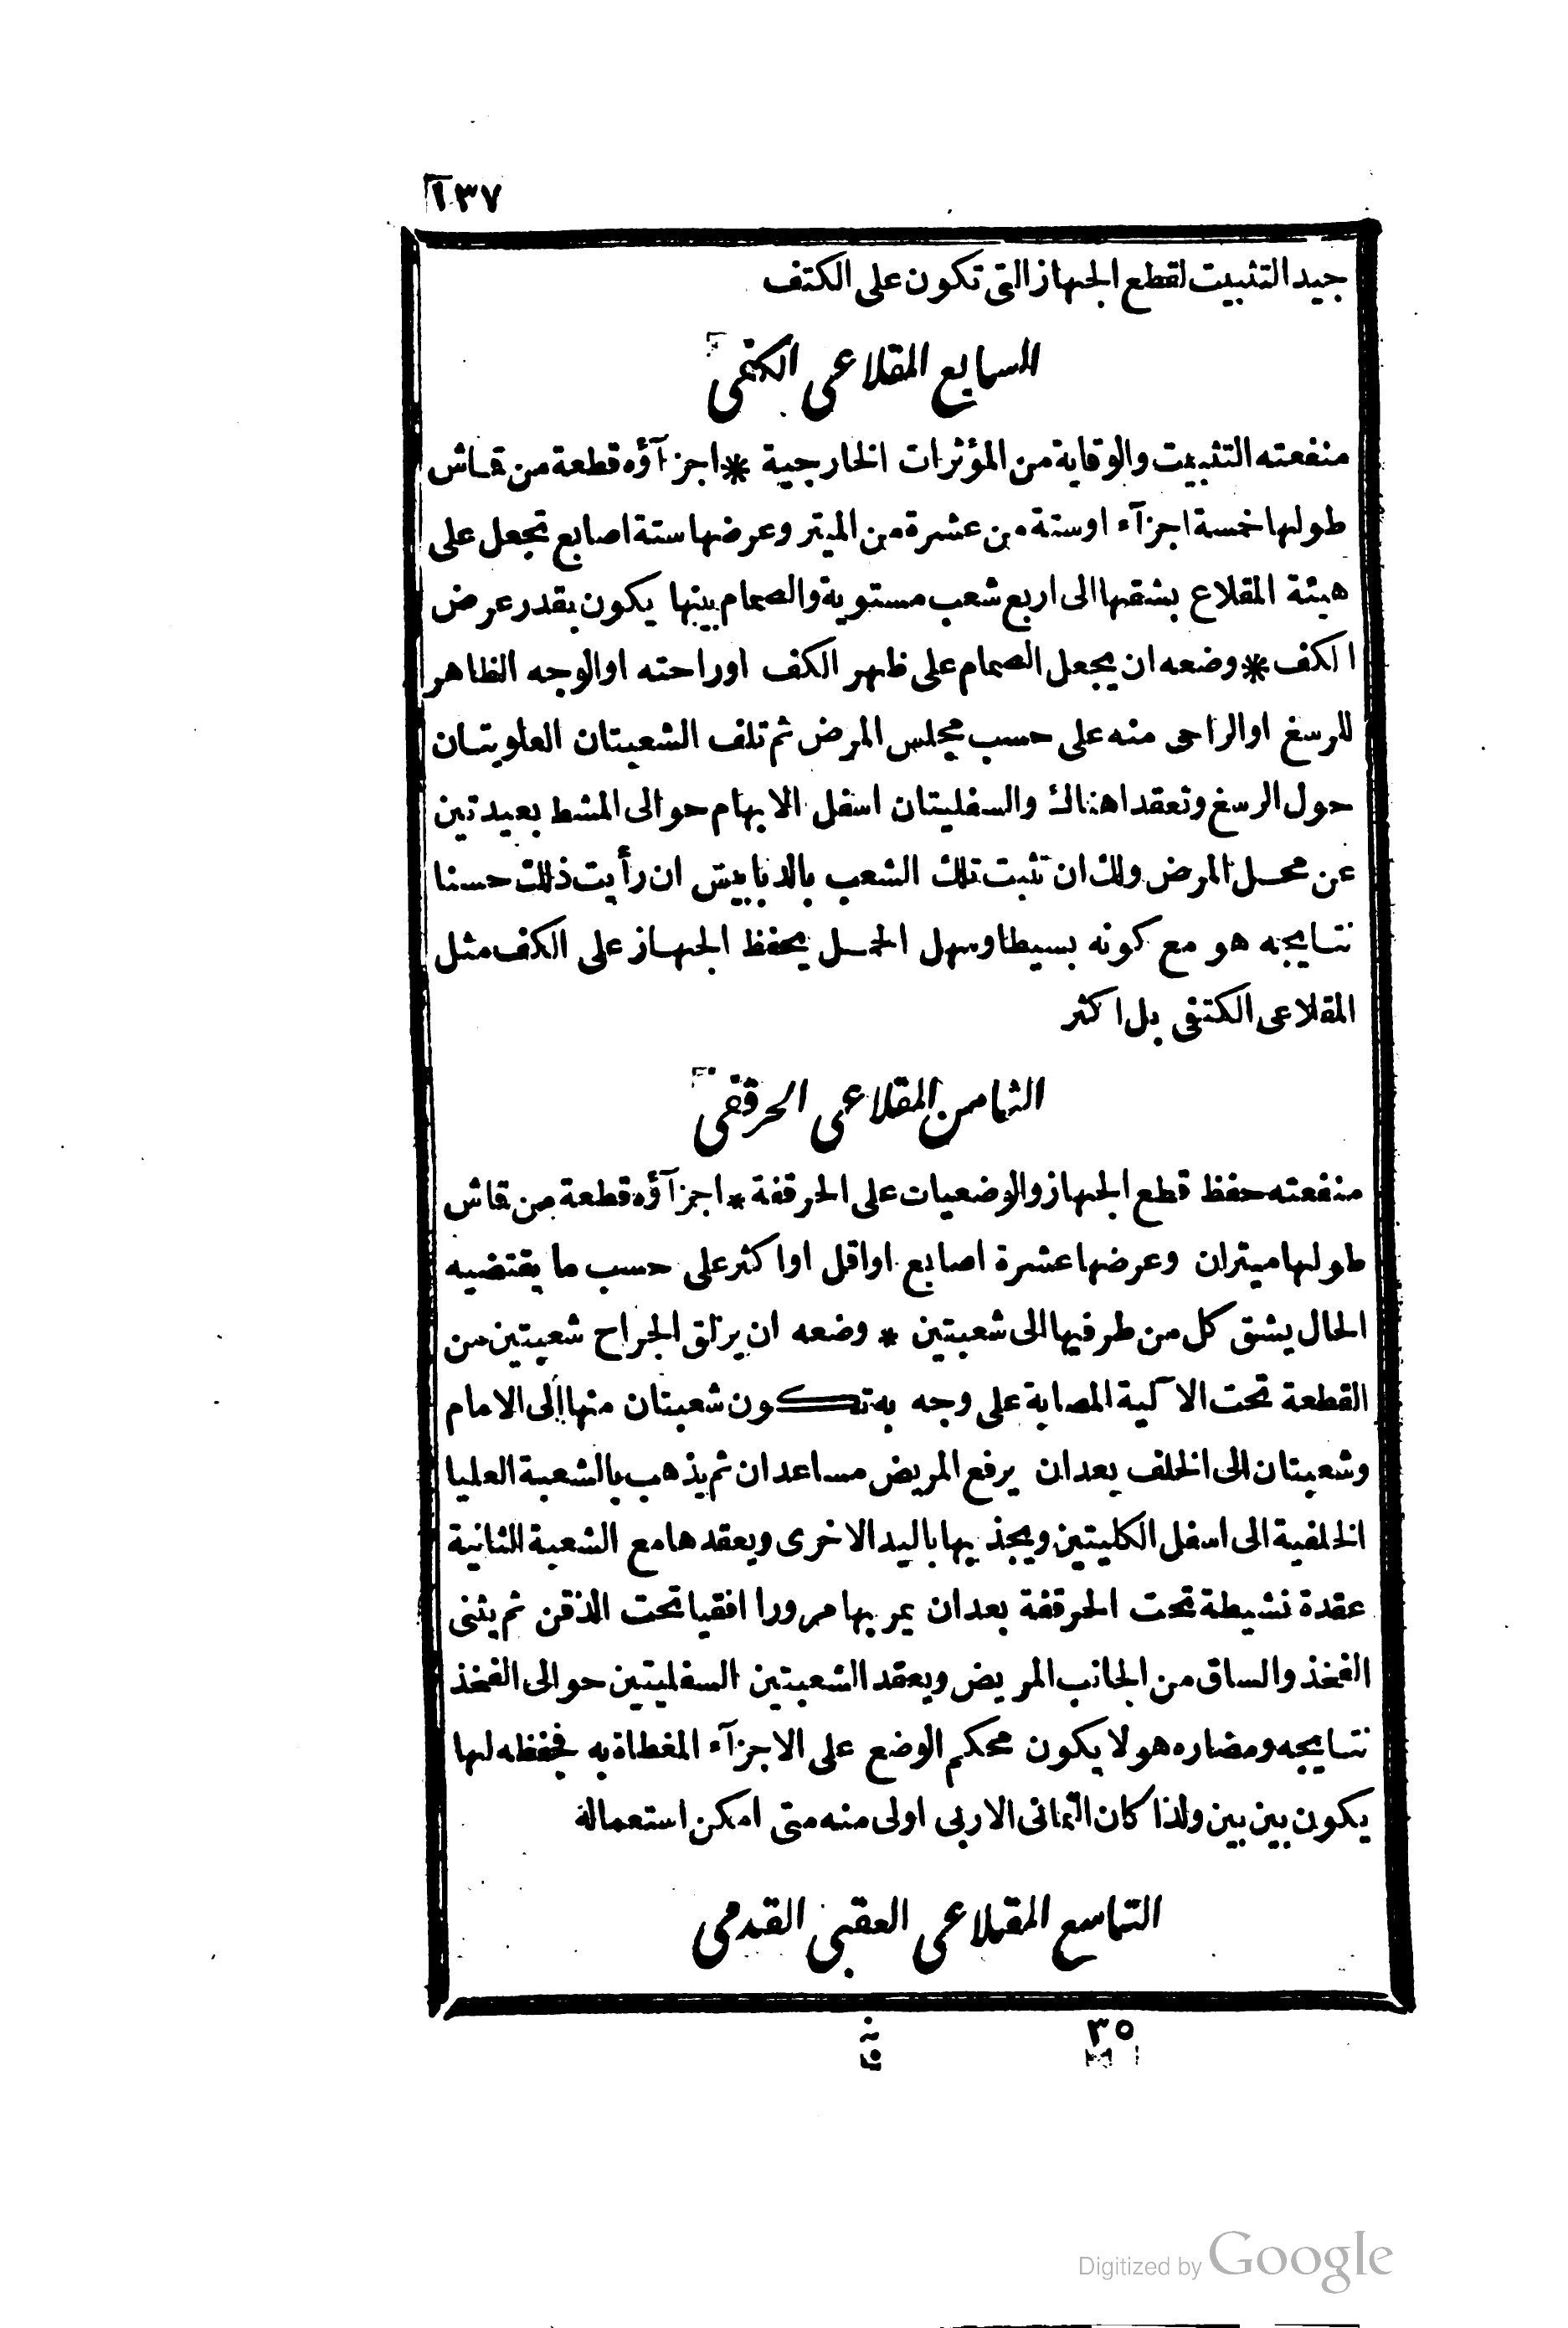 ١٣٧
جيد التثبيت لقطع الجهاز التى تكون على الكتف
السابع المقلاعى الكفى
منفعته التثبيت والوقاية من المؤثرات الخارجية * اجزآؤه قطعة من قماش
طولها خمسة اجزآء اوستة من عشرة من الميتر وعرضها ستة اصابع تجعل على
هيئة المقلاع بشقها الى اربع شعب مستوية والصمام بينها يكون بقدر عرض
الكف * وضعه ان يجعل الصمام على ظهر الكف اوراحته اوالوجه الظاهر
للرسغ اوالراحى منه على حسب مجلس المرض ثم تلف الشعبتان العلويتان
حول الرسغ وتعقدا هناك والسفليتان اسفل الابهام حوالى المشط بعيدتين
عن محل المرض ولك ان تثبت تلك الشعب بالدبابيش ان رأيت ذلك حسنا
نتايجه هو مع كونه بسيطا وسهل الحمل يحفظ الجهاز على الكف مثل
المقلاعى الكتفى بل اكثر
الثامن المقلاعى الحرقفى
منفعته حفظ قطع الجهاز والوضعيات على الحرقفة * اجزآؤه قطعة من قماش
طولها ميتران وعرضها عشرة اصابع اواقل اواكثر على حسب ما يقتضيه
الحال يشق كل من طرفيها الى شعبتين * وضعه ان يزلق الجراح شعبتين من
القطعة تحت الاكية المصابة على وجه به تكون شعبتان منها الى الامام
وشعبتان الى الخلف بعد ان يرفع المريض مساعدان ثم يذهب بالشعبة العليا
الخلفية الى اسفل الكليتين ويجذبها باليد الاخرى ويعقدها مع الشعبة الثانية
عقدة نشيطة تحت الحرقفة بعد ان يمر بها مرورا افقيا تحت الذقن ثم يثنى
الفخذ والساق من الجانب المريض ويعقد الشعبتين السفليتين حوالى الفخذ
نتايجه ومضاره هو لا يكون محكم الوضع على الاجزآء المغطاة به فحفظه لها
يكون بين بين ولذا كان الثمانى الاربى اولى منه متى امكن استعماله
التاسع المقلاعى العقبى القدمى
٣٥
Digitized by Google